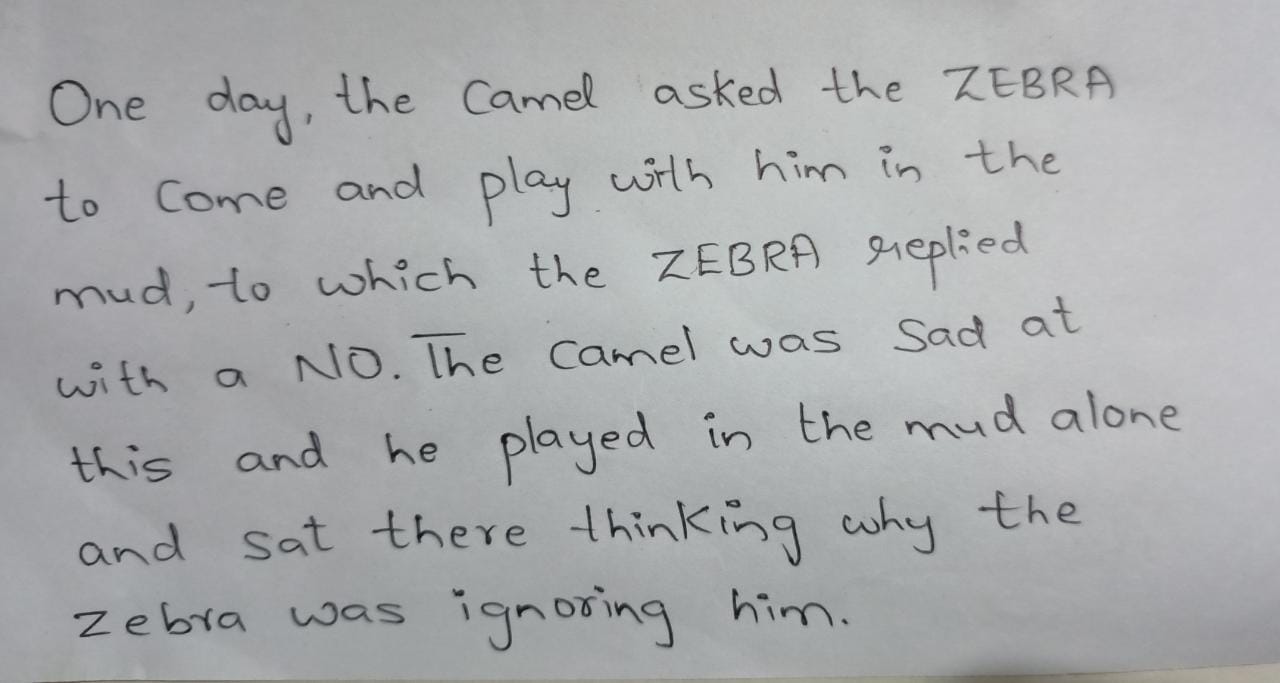 One day, the Camel asked the ZEBRA
to Come and play with him in the
mud, to which the ZEBRA replied
with a NO. The Camel was Sad at
this and he played in the mud alone
and sat there thinking why the
zebra was ignoring him.